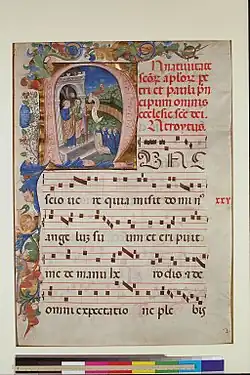 In natiuitate
scōrꝫ aploꝝ pe
tri et pauli prī
cipum omnis
ecclesie scē dei.
NUNC
scio ue re quia misit domi nꝰ
XXV
ange lum su um et eri puit
me de manu he rodis ⁊ de
omni expectatio ne ple bis